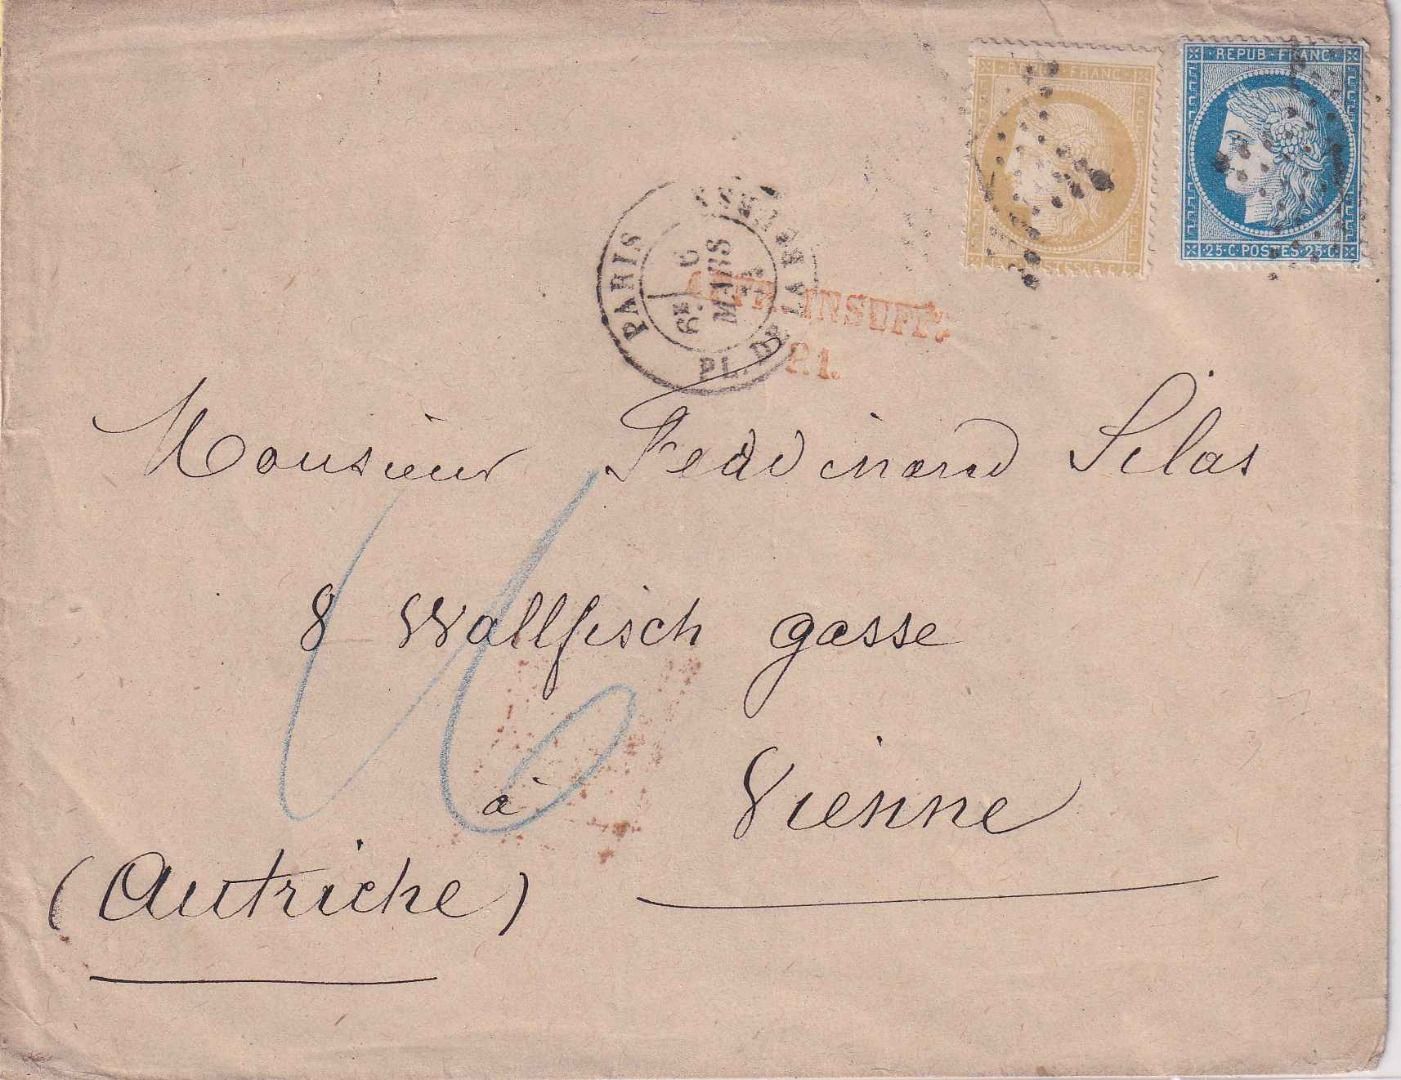 REPUB · FRANC
REPUB · FRANC
25·C·POSTES·25·C.
PARIS
PL. DE LA BOURSE
6E
6
MARS
AFFR. INSUFF.
P.1.
Monsieur Ferdinand Silas
8 Wallfisch gasse
à Vienne
(Autriche)
16